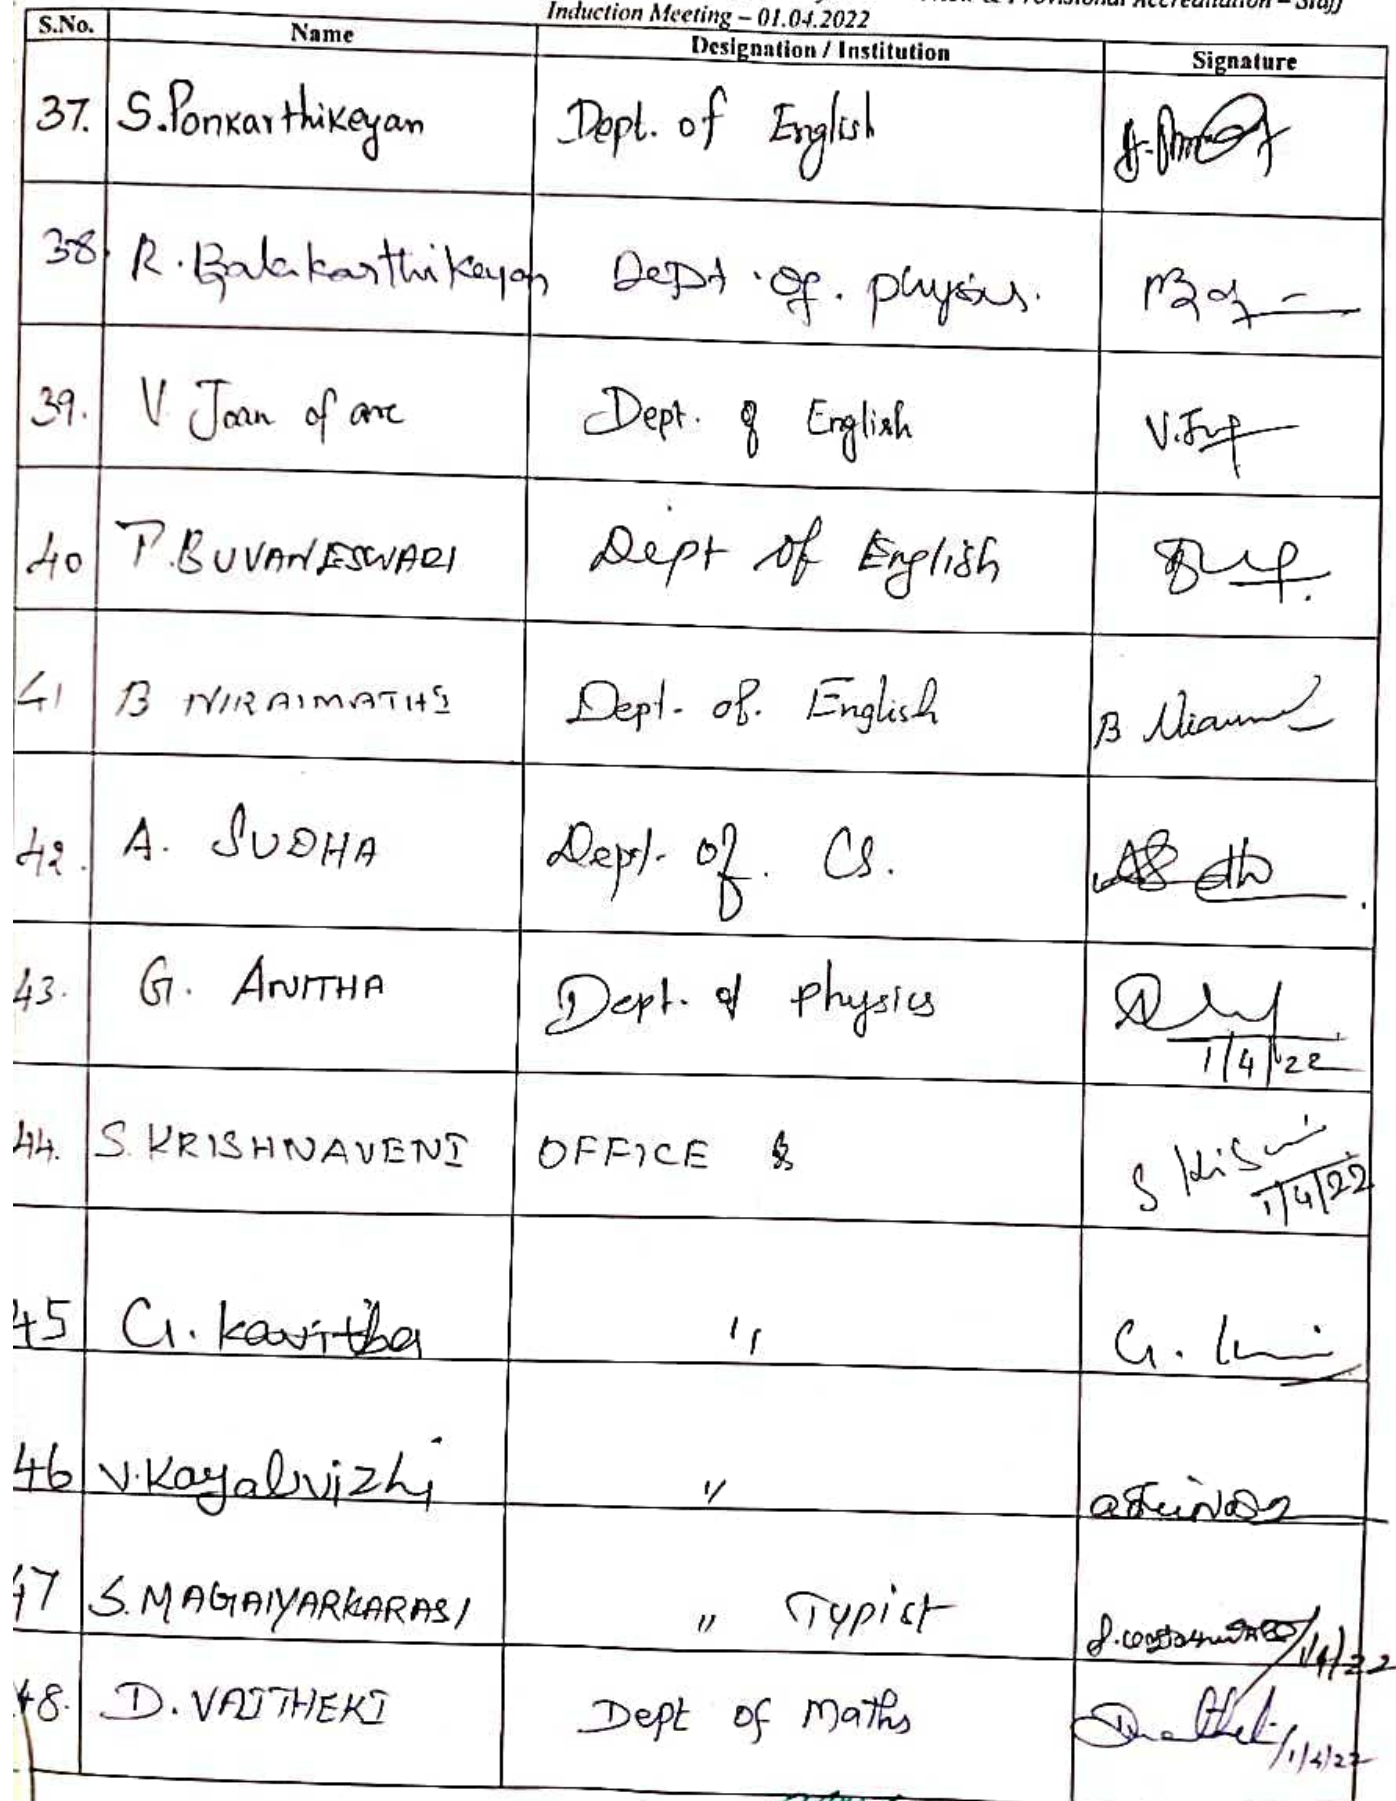 & Provisional Accreditation – Staff
Induction Meeting – 01.04.2022
S.No. Name Designation / Institution Signature
37. S.Ponkarthikeyan Dept. of English
38. R. Balakarthikeyan Dept. of. physics.
39. V Joan of arc Dept. of English
40 P.BUVANESWARI Dept of English
41 B NIRAIMATHI Dept. of. English B
42. A. SUDHA Dept. of. CS.
43. G. ANITHA Dept. of physics
1/4/22
44. S. KRISHNAVENI OFFICE S
1/4/22
45 G. Kavitha " G.
46 V.Kayalvizhi "
47 S.MAGAIYARKARASI " Typist 1/4/22
48. D. VAITHEKI Dept of Maths 1/4/22